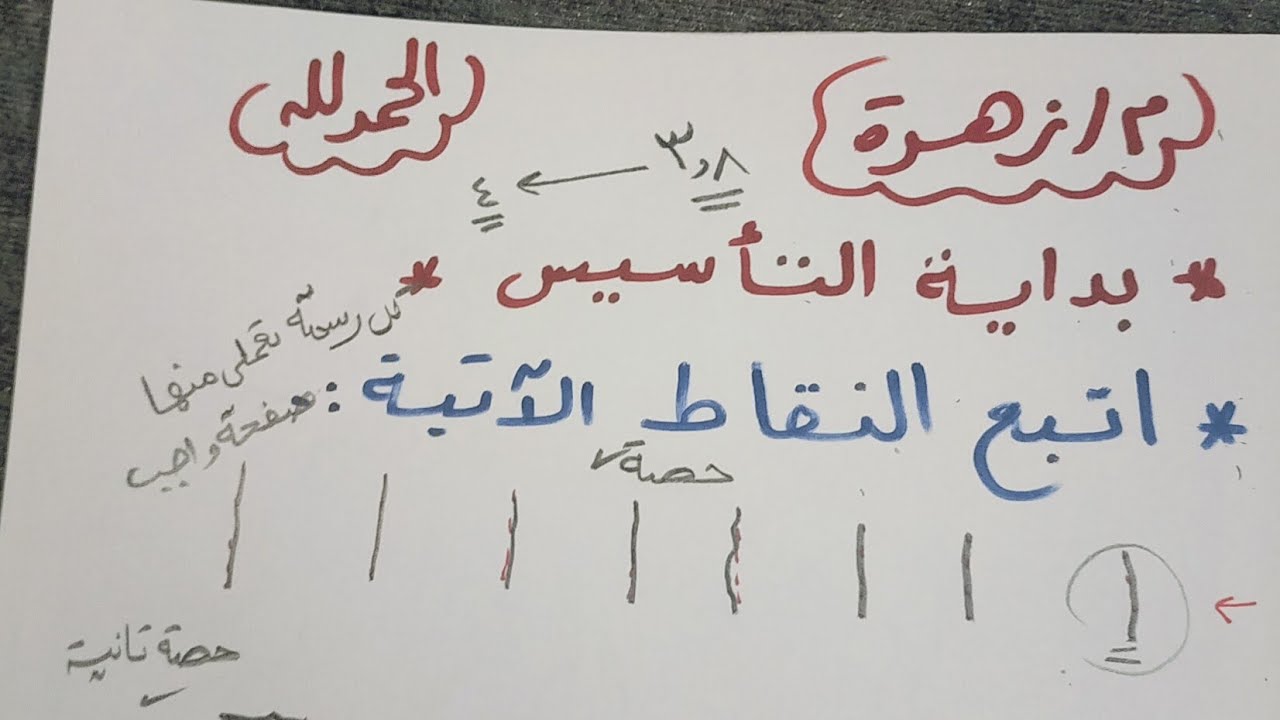 م / زهرة
الحمد لله
٣,٨ ← ٤
* بداية التأسيس *
كل رسمة تعملى منها
صفحة واجب
* اتبع النقاط الآتية :
حصة ✓
حصة تانية ✓